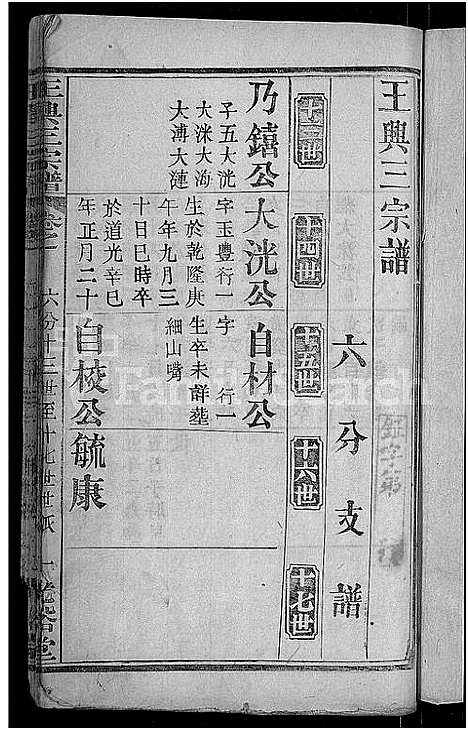 王興三宗譜
六分支譜
十三世
十四世
十五世
十六世
十七世
乃鐃公
子五大洸
大洙大洵
大溥大漣
大洸公
字玉豐行一
生於乾隆庚
午年九月三
十日巳時卒
於道光辛巳
年正月二十
自材公
字 行一
生卒未詳塟
細山嘴
自校公
毓康
王興三宗譜
六分十三世至十七世世系